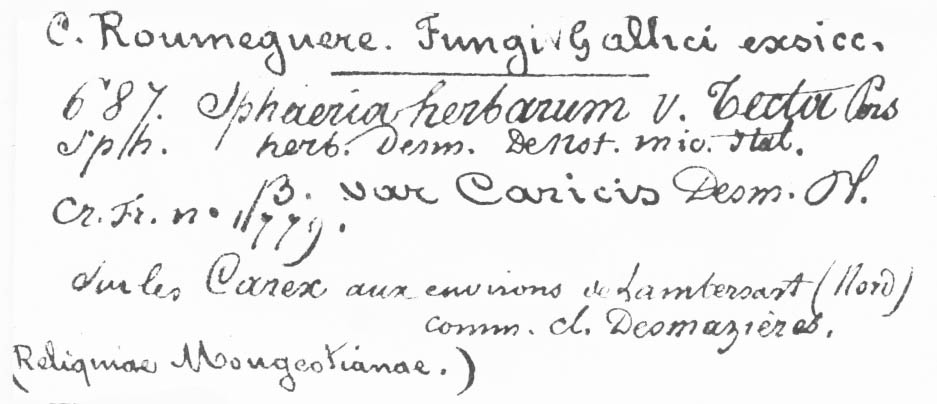 C. Roumeguere. Fungi Gallici exsicc.
687. Sphaeria herbarum v. Tecta Pers
Sph. herb. Desm. DeNot. mic. Ital.
Cr. Fr. n° 1779. β. var Caricis Desm. Pl.
Sur les Carex aux environs de Lambersart (Nord)
comm. cl. Desmazières.
(Reliquiae Mougeotianae.)